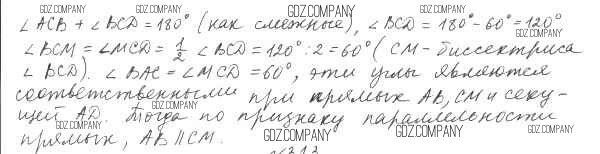 GDZ.COMPANY GDZ.COMPANY GDZ.COMPANY
∠ACB + ∠BCD = 180° (как смежные), ∠BCD = 180° - 60° = 120°
GDZ.COMPANY
∠BCM = ∠MCD = 1/2 ∠BCD = 120° : 2 = 60° (CM - биссектриса
∠BCD). ∠BAC = ∠MCD = 60°, эти углы являются
соответственными при прямых AB, CM и секу-
GDZ.COMPANY
щей AD. Тогда по признаку параллельности
GDZ.COMPANY
прямых, AB || CM.
GDZ.COMPANY GDZ.COMPANY GDZ.COMPANY